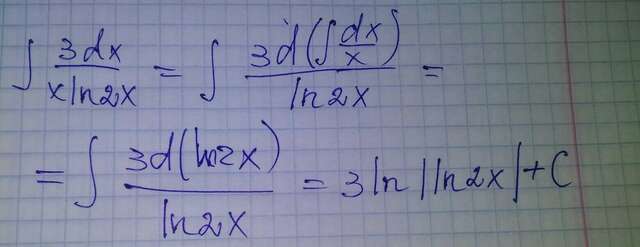 ∫ 3dx / x ln2x = ∫ 3d(∫ dx/x) / ln2x =
= ∫ 3d(ln2x) / ln2x = 3ln|ln2x|+C